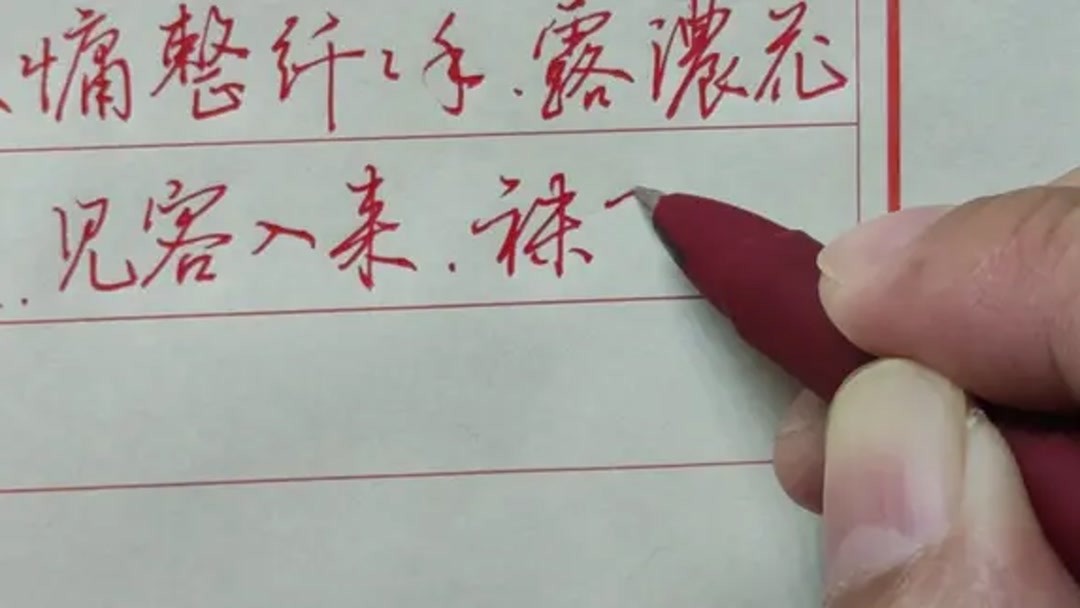 慵整纤々手.露濃花
见客入来.袜